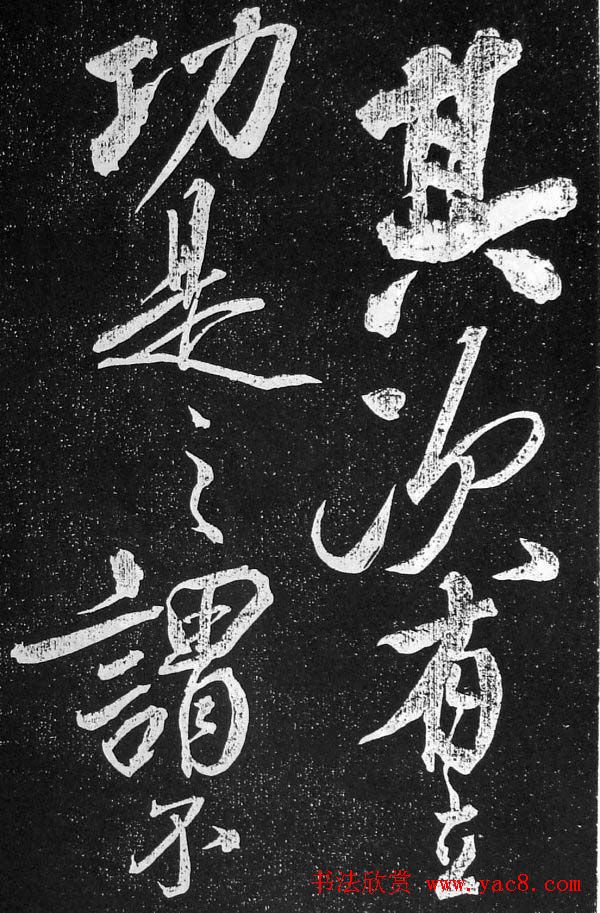 其次有立
功是之謂不
书法欣赏 www.yac8.com